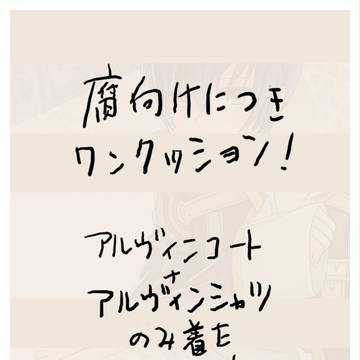 腐向けにつき
ワンクッション!
アルヴィンコート
+
アルヴィンシャツ
のみ着た